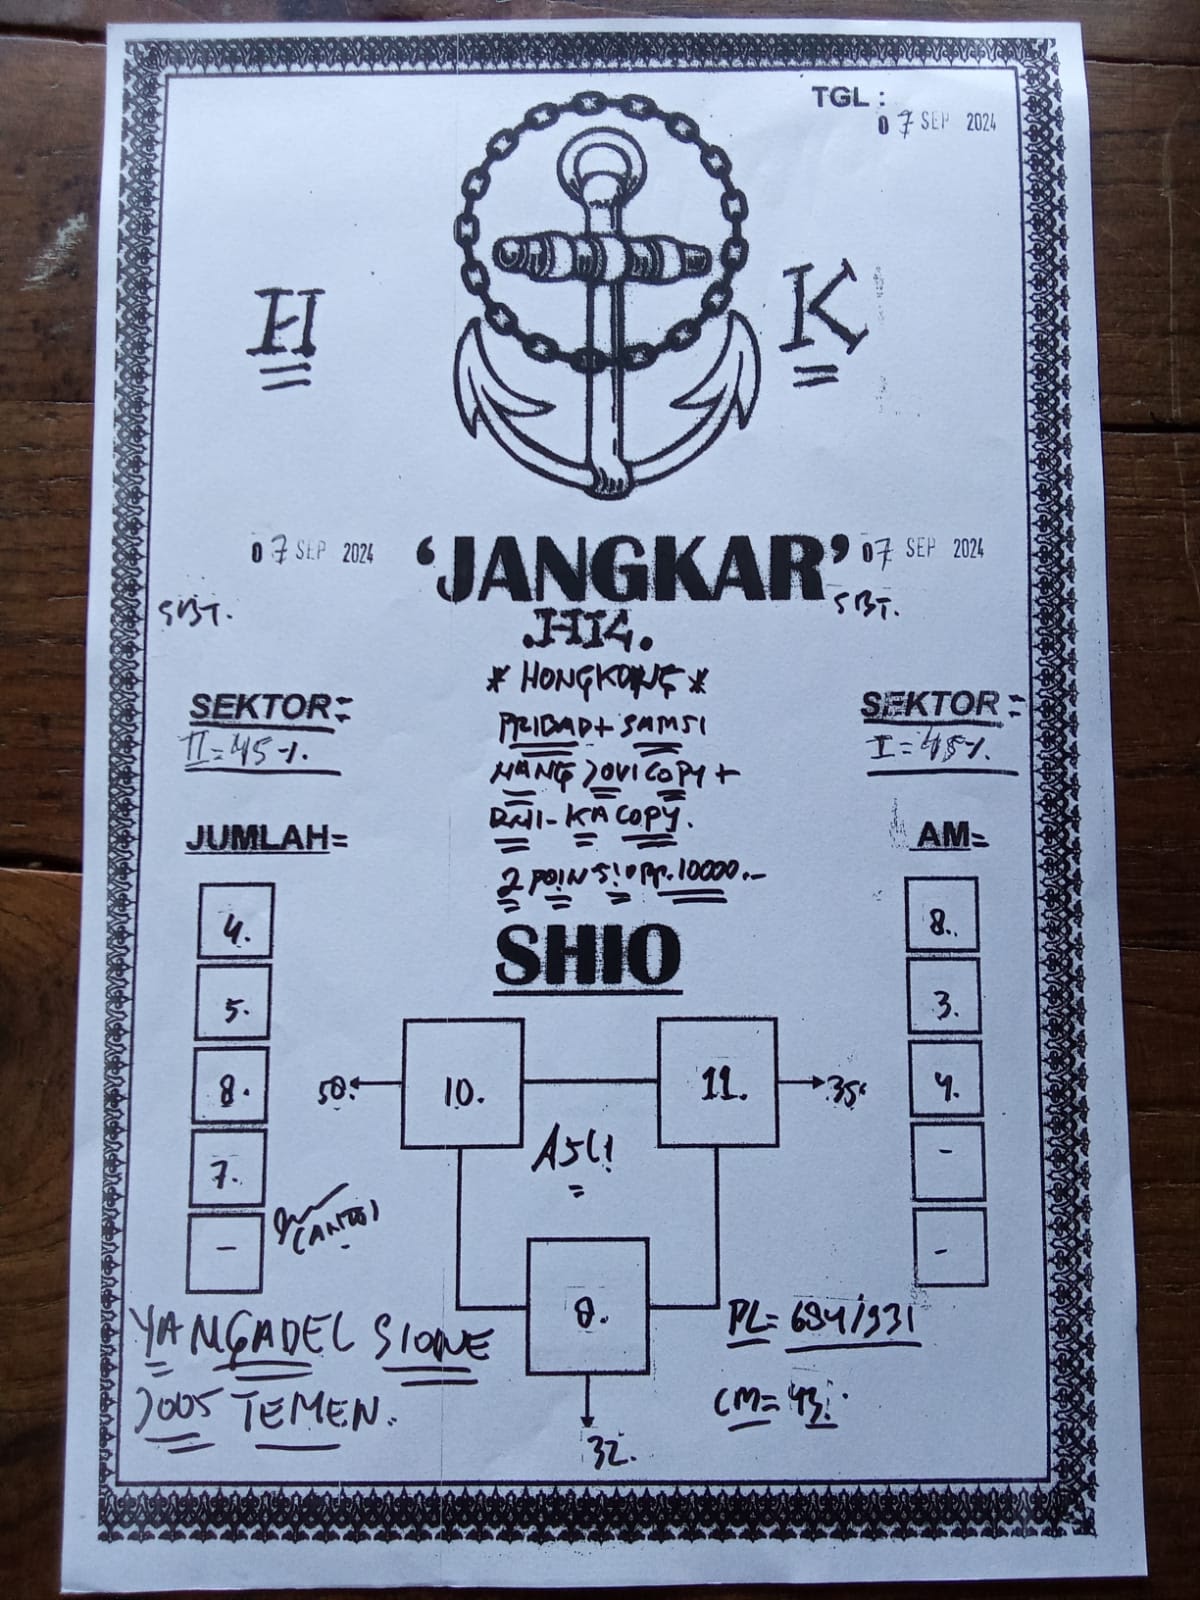 TGL :
07 SEP 2024
H K
07 SEP 2024
'JANGKAR'
07 SEP 2024
SBT.
SBT.
* HONGKONG *
SEKTOR=
II=45%
SEKTOR=
I=45%
PRIBAD+ SAMSI
COPY+
COPY.
2 POIN 10000.-
JUMLAH=
4.
5.
8.
7.
-
AM=
8.
3.
4.
-
-
SHIO
50.
10.
11.
35.
ASLI
8.
32.
YANGADEL SIONE
JOOS TEMEN.
PL= 694/931
CM= 43.